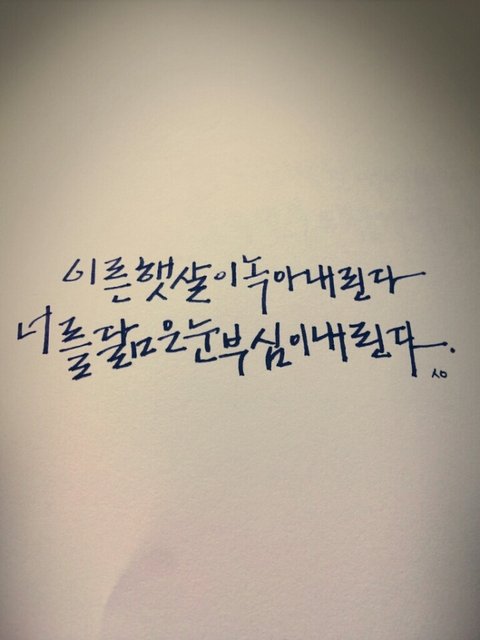 이른 햇살이 녹아내린다
너를 닮은 눈부심이 내린다.